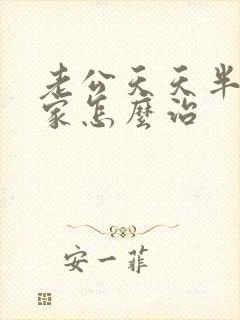 老公天天半
家怎麼治
安一菲